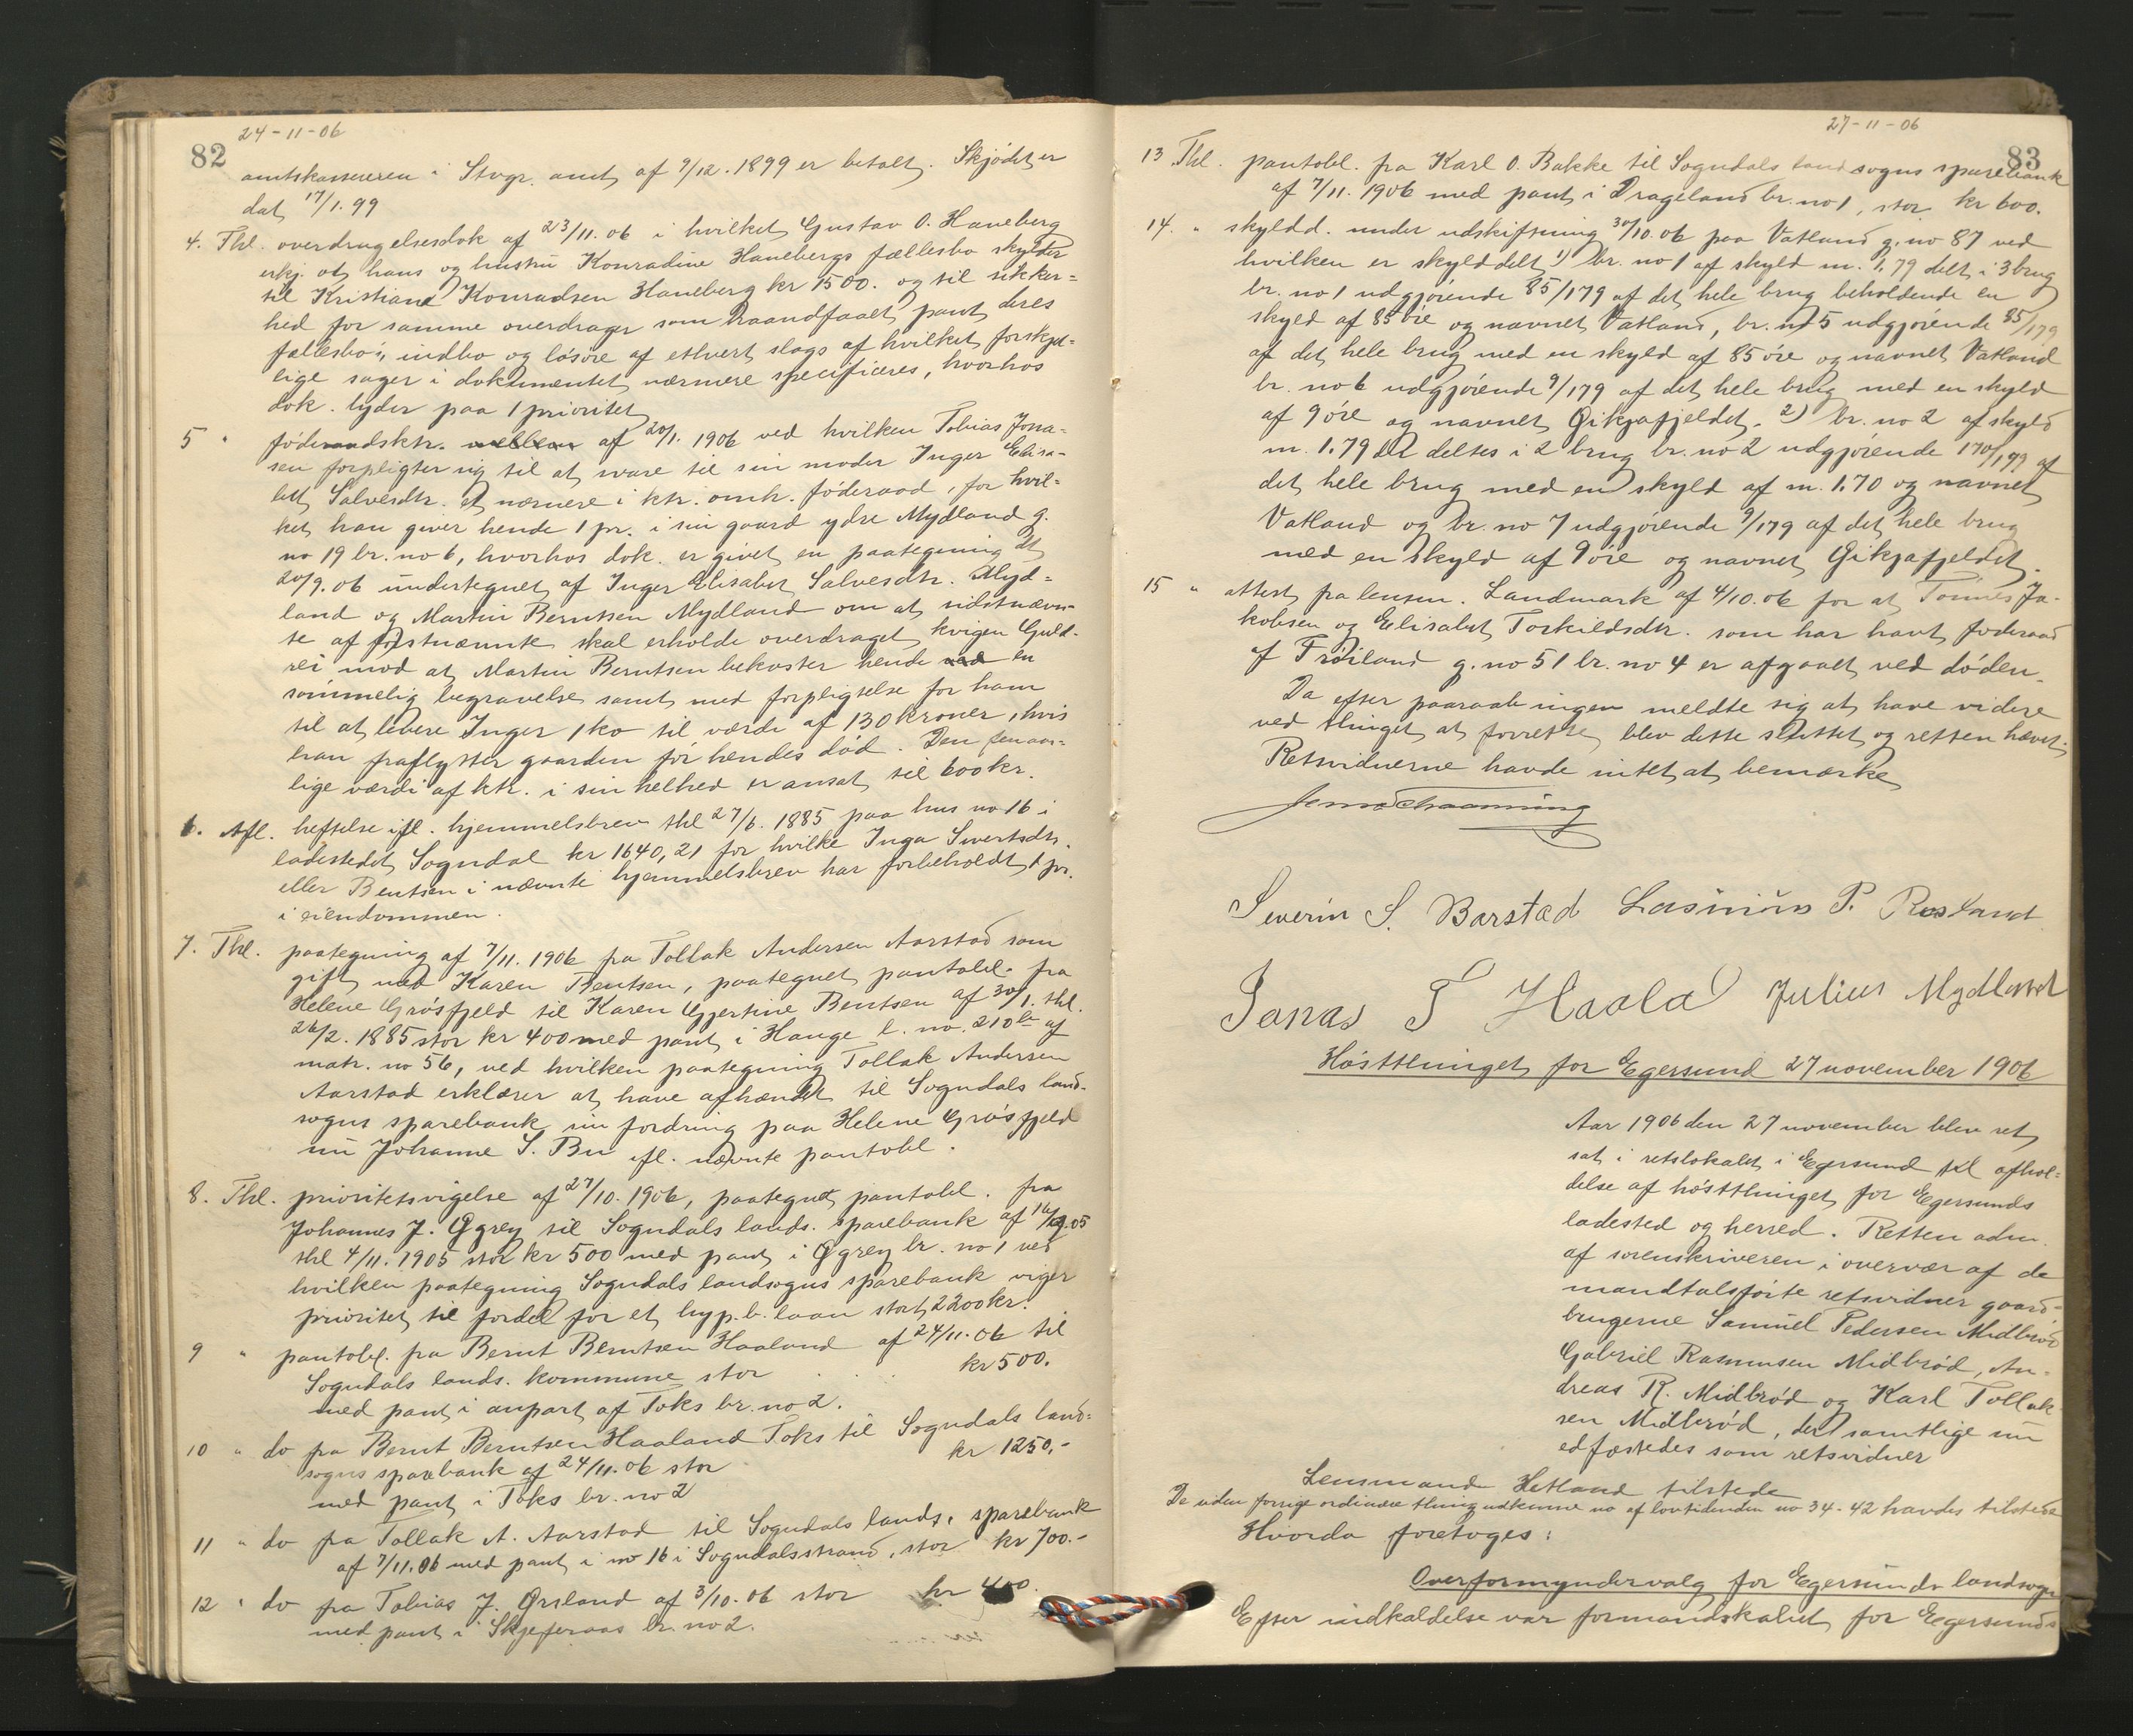 24-11-06
82
amtskassereren i Stvgr. amt af 9/12. 1899 er betalt. Skjødet er
dat 17/1. 99
4. Thl. overdragelsesdok af 23/11. 06 i hvilket Gustav O. Haneberg
erkj. at hans og hustru Konradine Hanebergs fællesbo skylder
til Kristiane Konradsen Haneberg kr 1500. og til sikker=
hed for samme overdrager som haandfaaet pant deres
fællesbo's indbo og løsøre af ethvert slags af hvilket forskjel=
lige sager i dokumentet nærmere specificeres, hvorhos
dok. lyder paa 1 prioritet
5 " føderaadsktr. mellem af 20/1. 1906 ved hvilken Tobias Jona-
sen forpligter sig til at svare til sin moder Inger Elisa-
bet Salvesdtr. et nærmere i ktr. omh. føderaad, for hvil-
ket han giver hende 1 pr. i sin gaard ydre Mydland g.
no 19 br. no 6, hvorhos dok. er givet en paategning dt
20/9. 06 undertegnet af Inger Elisabet Salvesdtr. Myd=
land og Martin Berntsen Mydland om at sidstnævn-
te af førstnævnte skal erholde overdraget kvigen Guld-
rei mod at Martin Berntsen bekoster hende ved en
sømmelig begravelse samt med forpligtelse for ham
til at levere Inger 1 ko til værdi af 130 kroner, hvis
han fraflytter gaarden før hendes død. Den femaar=
lige værdi af ktr. i sin helhed er ansat til 600 kr.
6. Afl. heftelse ifl. hjemmelsbrev thl 27/6. 1885 paa hus no 16 i
ladestedet Sogndal kr 1640,21 for hvilke Inga Sivertsdtr.
eller Bentsen i nævnte hjemmelsbrev har forbeholdt 1 pr.
i eiendommen.
7. Thl. paategning af 7/11. 1906 fra Tollak Andersen Aarstad som
gift med Karen Bentsen, paategnet pantobl. fra
Helene Grøsfjeld til Karen Gjertine Bentsen af 30/1. thl.
26/2. 1885 stor kr 400 med pant i Hauge l. no. 210 b af
matr. no 56, ved hvilken paategning Tollak Andersen
Aarstad erklærer at have afhændet til Sogndals land-
sogns sparebank sin fordring paa Helene Grøsfjeld
nu Johanne S. Bu ifl. nævnte pantobl.
8. Thl. prioritetsvigelse af 27/10. 1906, paategnet pantobl. fra
Johannes J. Øgrey til Sogndals lands. sparebank af 05
thl 4/11. 1905 stor kr 500 med pant i Øgrey br. no 1 ved
hvilken paategning Sogndals landsogns sparebank viger
prioritet til fordel for et hyp. b. laan stort 2200 kr.
9 " pantobl. fra Bernt Berntsen Haaland af 24/11. 06 til
Sogndals lands. kommune stor . . . kr 500.
med pant i anpart af Toks br. no 2.
10 " do fra Bernt Berntsen Haaland Toks til Sogndals land=
sogns sparebank af 24/11. 06 stor kr 1250.-
med pant i Toks br. no 2
11 " do fra Tollak A. Aarstad til Sogndals lands. sparebank
af 7/11. 06 med pant i no 16 i Sogndalsstrand, stor kr 700.-
12 " do fra Tobias J. Ørsland af 3/10. 06 stor kr 400.
med pant i Skjeferaas br. no 2.
27-11-06
83
13 Thl. pantobl. fra Karl O. Bakke til Sogndals landsogns sparebank
af 7/11. 1906 med pant i Drageland br. no 1, stor kr 600.
14. " skyldd. under udskiftning 30/10. 06 paa Vatland g. no 87 ved
hvilken er skylddelt 1) br. no 1 af skyld m. 1,79 delt i 3 brug
br. no 1 udgjørende 85/179 af det hele brug beholdende en
skyld af 85 øre og navnet Vatland, br. no 5 udgjørende 85/179
af det hele brug med en skyld af 85 øre og navnet Vatland
br. no 6 udgjørende 9/179 af det hele brug med en skyld
af 9 øre og navnet Gikjafjeldet. 2) br. no 2 af skyld
m. 1.79 deltes i 2 brug br. no 2 udgjørende 170/179 af
det hele brug med en skyld af m. 1.70 og navnet
Vatland og br. no 7 udgjørende 9/179 af det hele brug
med en skyld af 9 øre og navnet Gikjafjeldet.
15 " attest fra lensm. Landmark af 4/10. 06 for at Tønnes Ja-
kobsen og Elisabet Torkildsdtr. som har havt føderaad
af Frøiland g. no 51 br. no 4 er afgaaet ved døden.
Da efter paaraab ingen meldte sig at have videre
ved thinget at forrette, blev dette sluttet og retten hævet.
Retsvidnerne havde intet at bemærke
Jens Schaanning
Severin S. Barstad Rasmus P. Rosland
Jonas T Haaland Julius Mydland
Høstthinget for Egersund 27 november 1906
Aar 1906 den 27 november blev ret
sat i retslokalet i Egersund til afhol=
delse af høstthinget for Egersunds
ladested og herred. Retten adm.
af sorenskriveren i overvær af de
mandtalsførte retsvidner gaard-
brugerne Samuel Pedersen Midbrød
Gabriel Rasmusen Midbrød, An-
dreas R. Midbrød og Karl Tollak-
sen Midbrød, der samtlige nu
edfæstedes som retsvidner
Lensmand Hetland tilstede
De siden forrige ordinære thing udkomne no af lovtidenden no 34-42 havdes tilstede
Hvorda foretoges:
Overformyndervalg for Egersunds landsogn
Efter indkaldelse var formandskabet for Egersunds